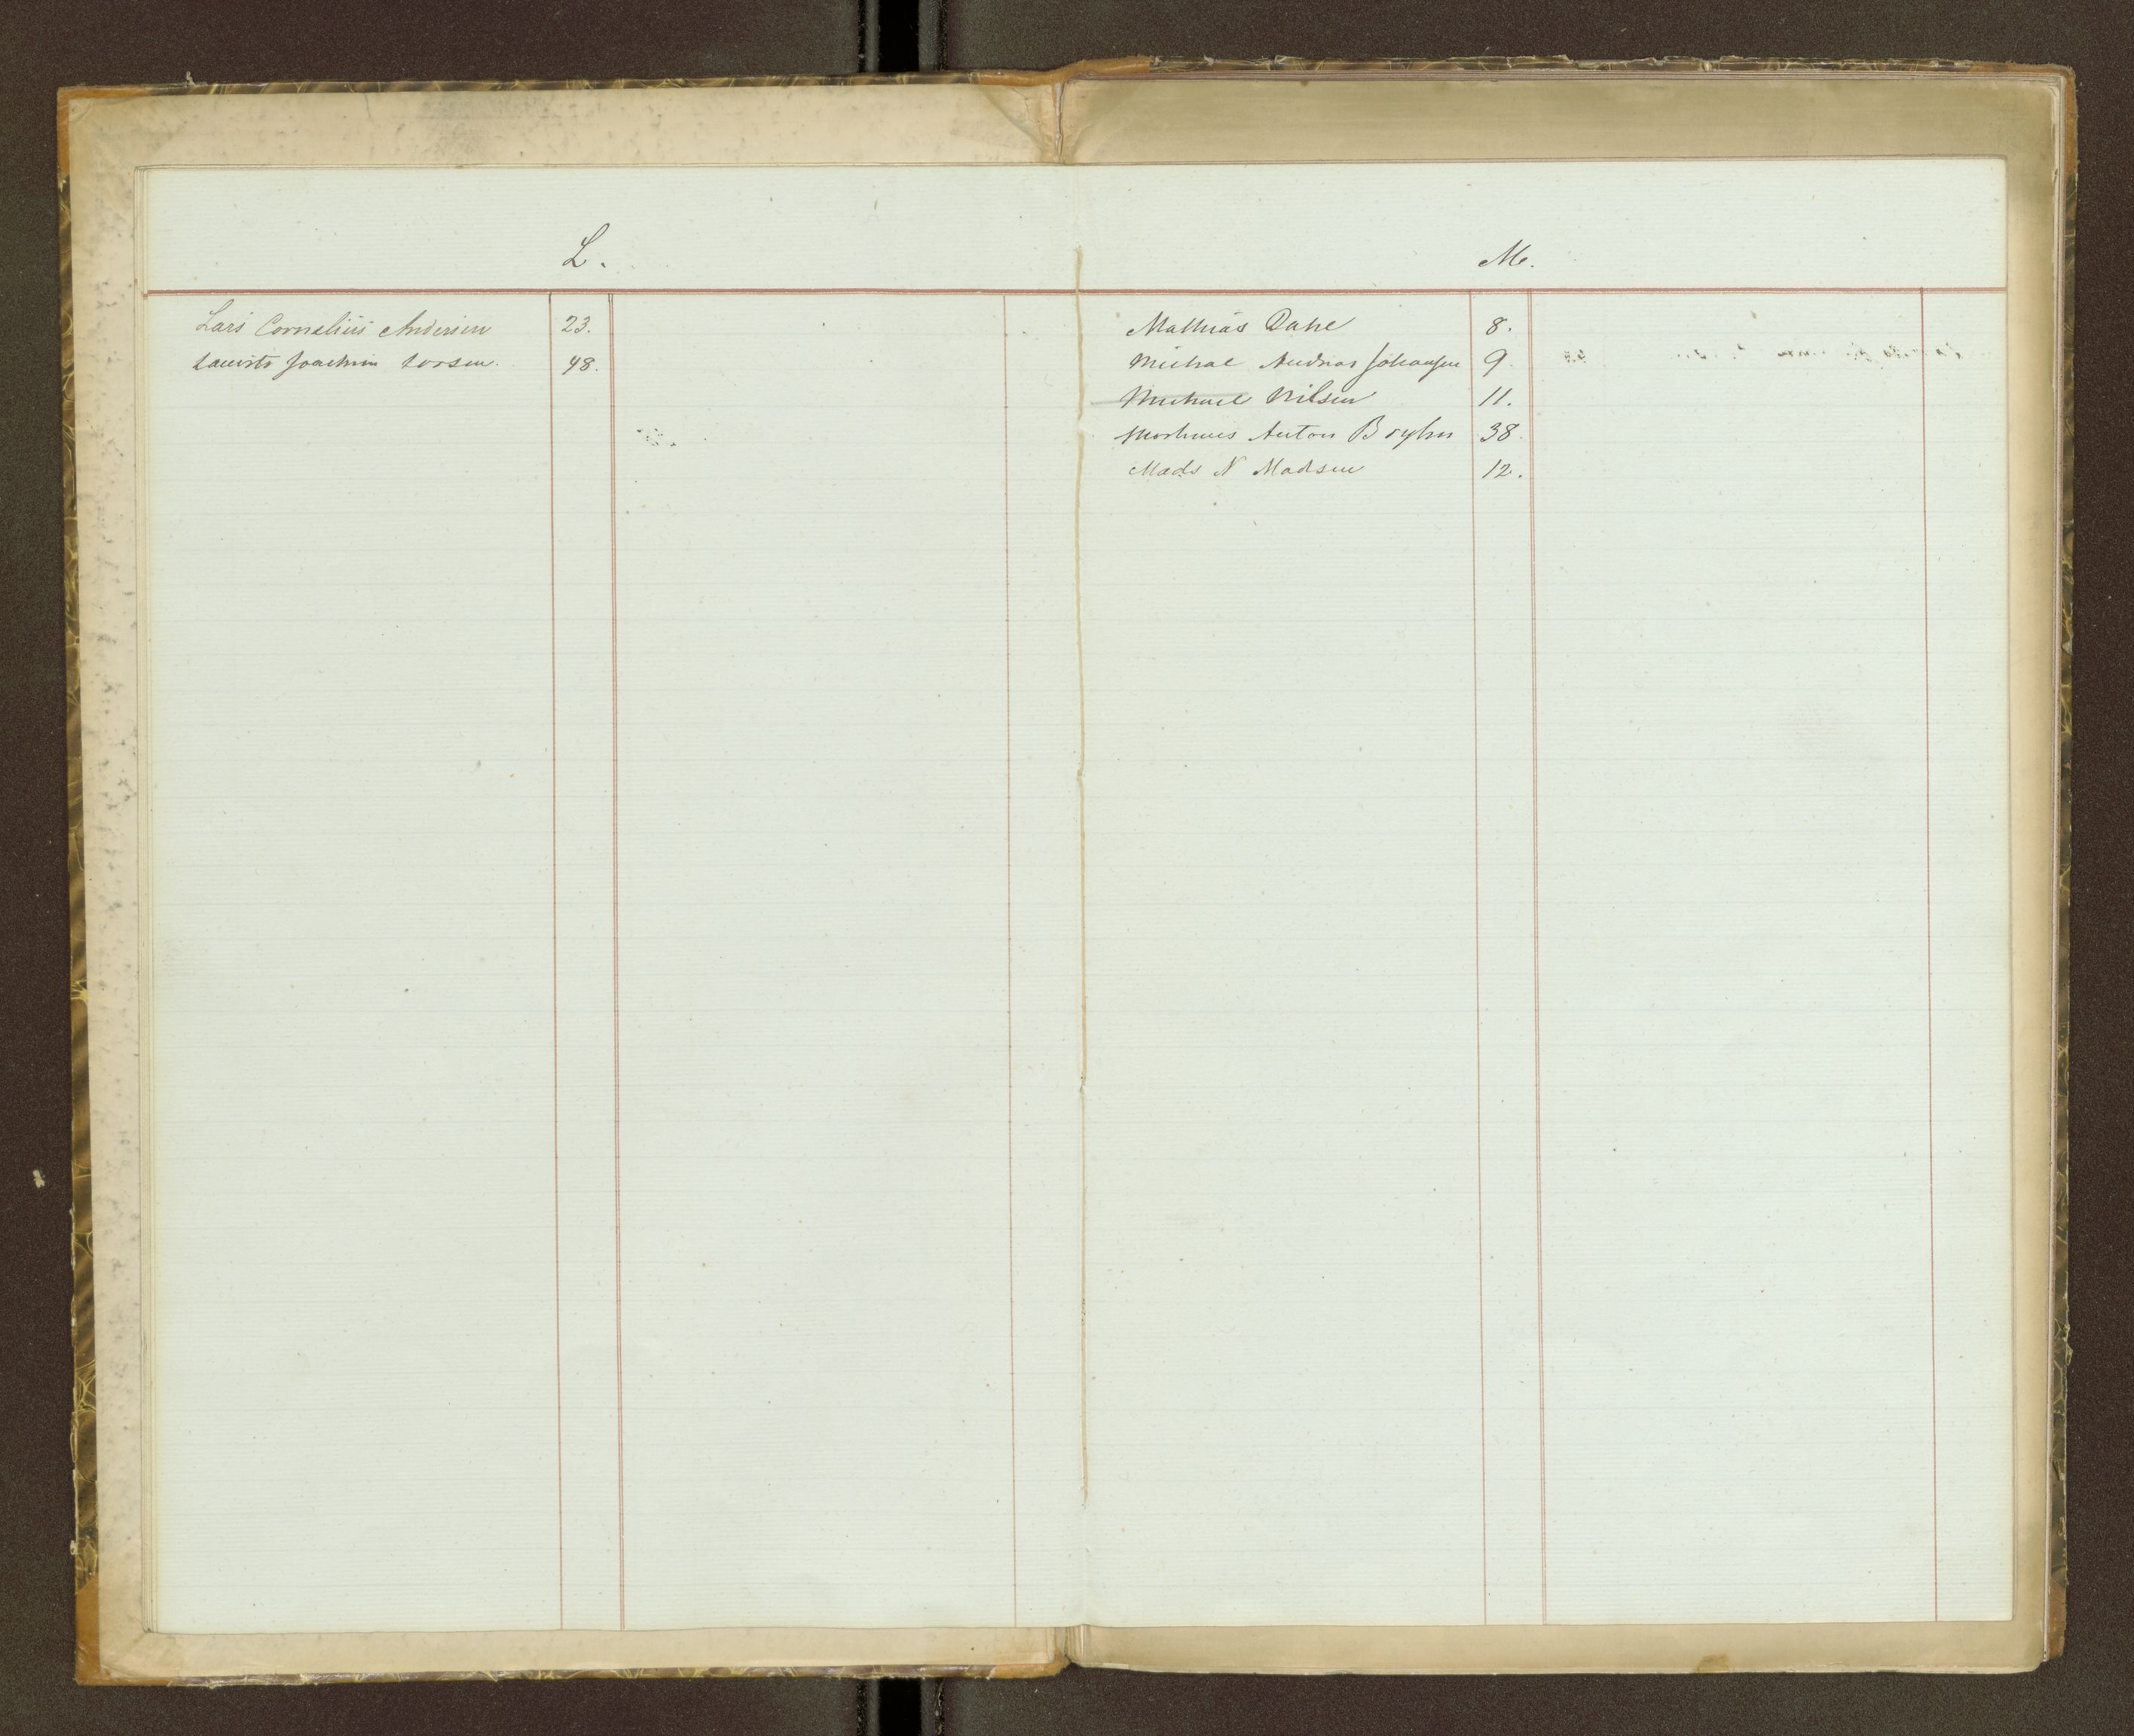 L.
Lars Cornelius Andersen 23.
Laurits Joachim 48.
M.
Mathias Dahl 8.
Michal Andreas Johansen 9.
Michael Nilsen 11.
Anton 38.
Mads N Madsen 12.